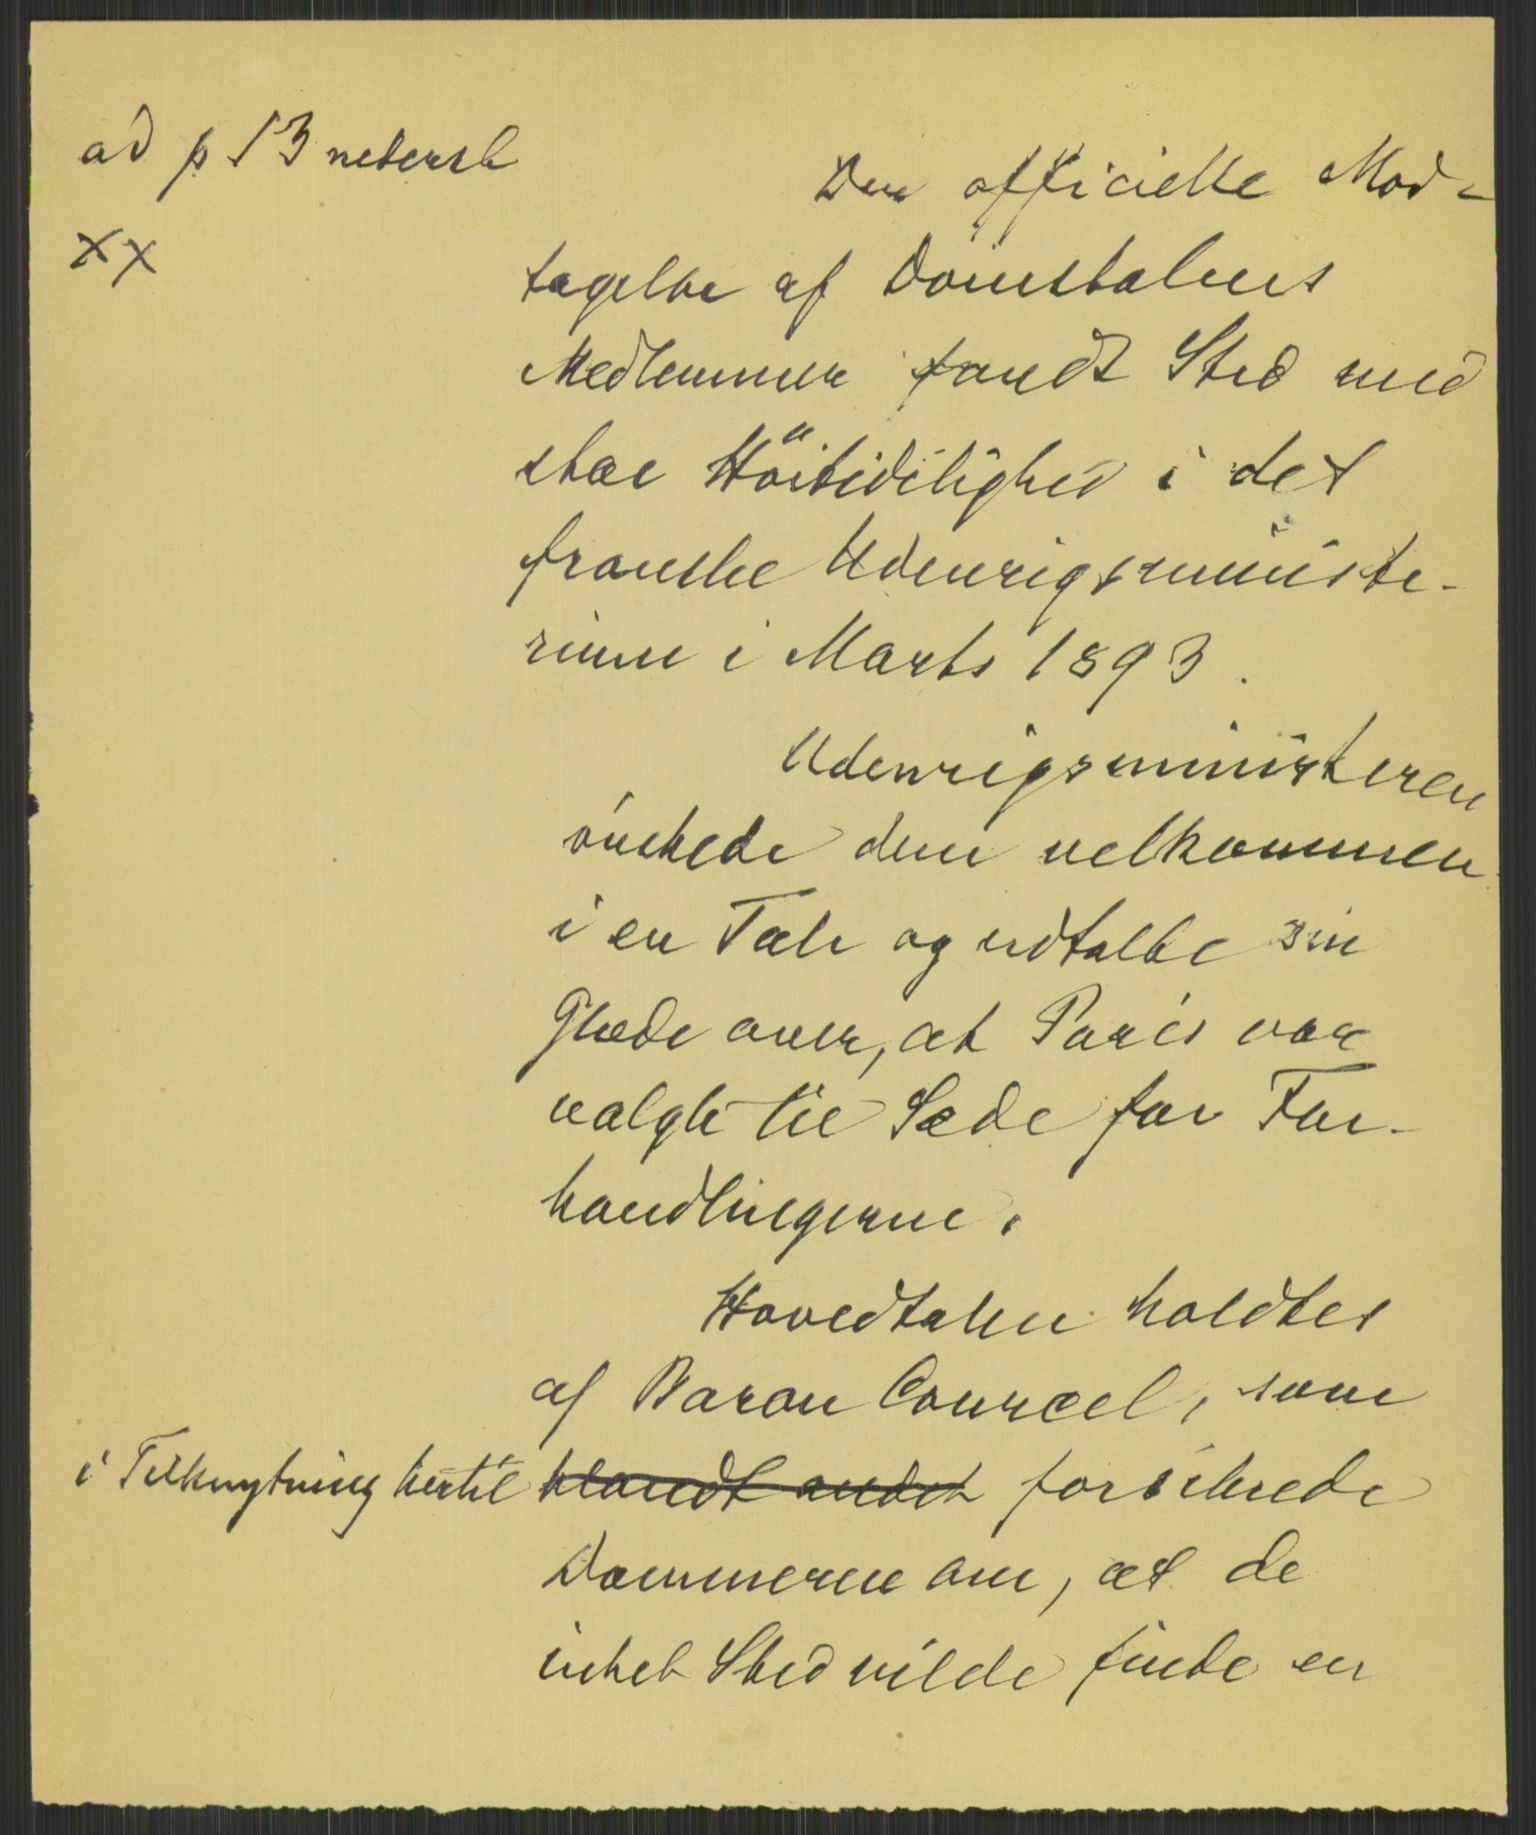 ad p 13 nederst
XX
Den officielle Mod-
tagelse af Domstolens
Medlemmer fandt Sted med
stor Höitidelighed i det
franske Udenrigsministe-
rium i Marts 1893.
Udenrigsministeren
ønskede dem velkommen
i en Tale og udtalte sin
Glæde over, at Paris var
valgt til Sæde for For-
handlingerne.
Hovedtalen holdtes
af Baron Courcel, som
i Tilknytning hertil blandt andet forsikrede
Dommerne om, at de
intet Sted vilde finde en